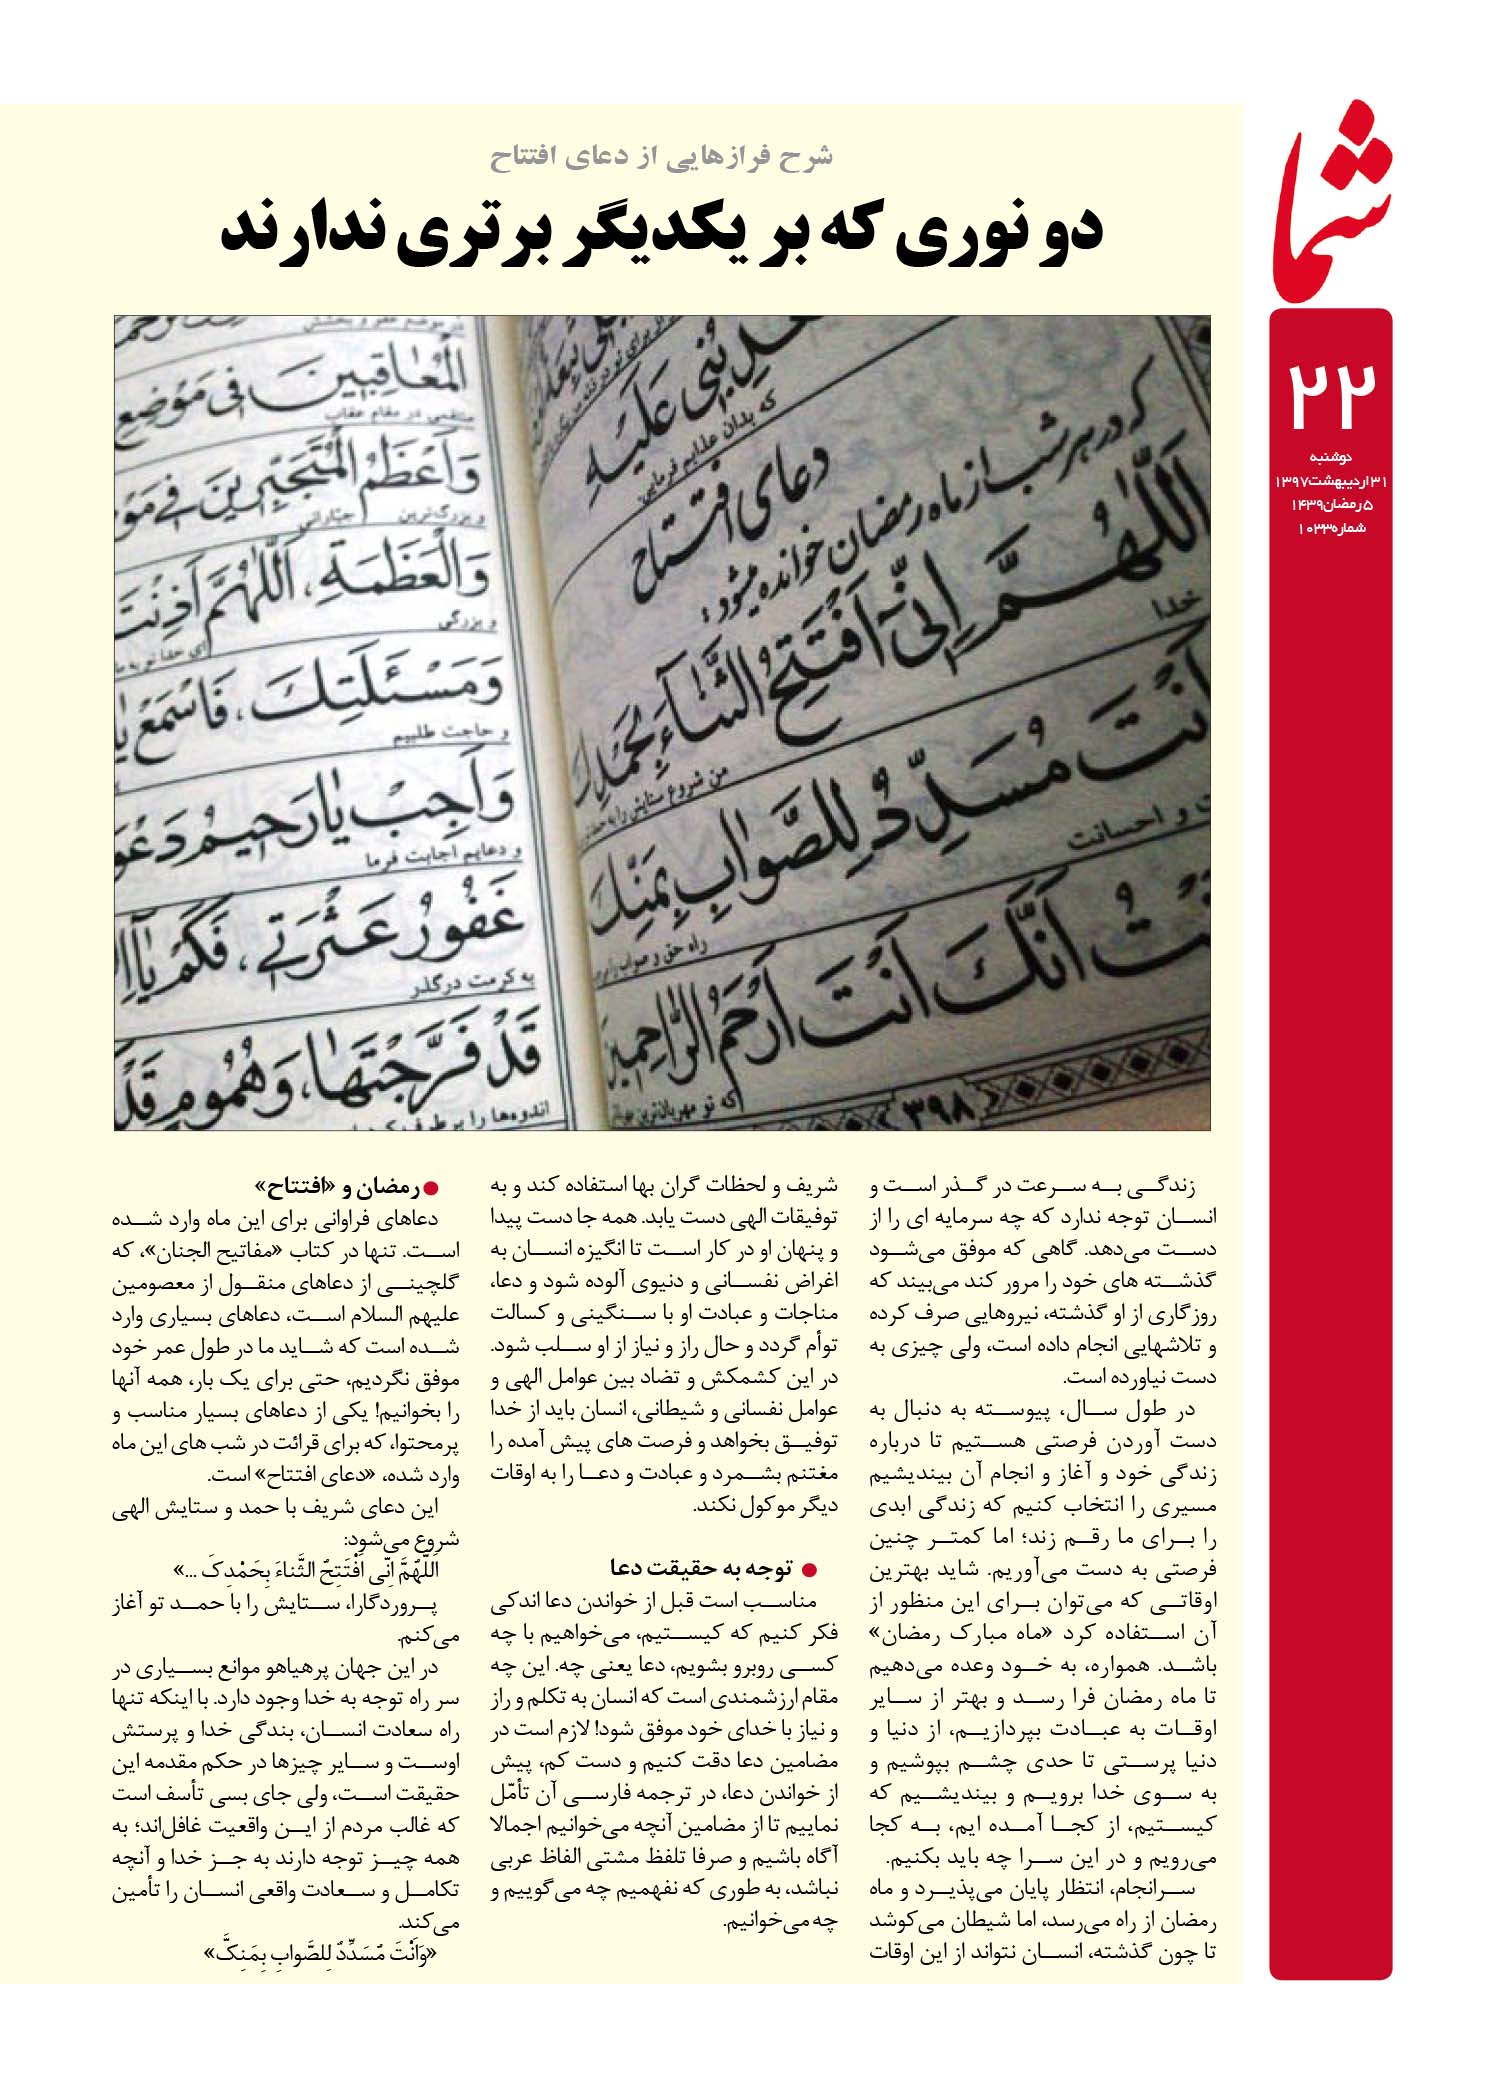 شما
۲۲
دوشنبه
۳۱اردیبهشت۱۳۹۷
۵رمضان۱۴۳۹
شماره۱۰۳۳
شرح فرازهایی از دعای افتتاح
دو نوری که بر یکدیگر برتری ندارند
الْمُعاقِبینَ فی مَوْضِعِ
منتقمی در مقام عقاب
وَاَعْظَمُ الْمُتَجَبِّرینَ فی
و بزرگترین جبّارانی
وَالْعَظَمَةِ، اَللّهُمَّ اَذِنْتَ
و بزرگی
وَمَسْئَلَتِكَ، فَاسْمَعْ یا
و حاجت طلبیم
وَاَجِبْ یا رَحیمُ
و دعایم اجابت فرما
غَفُورُ عَثْرَتی، فَكَمْ یا
به کرمت درگذر
قَدْ فَرَّجْتَها، وَهُمُومٍ قَدْ
اندوه‌ها را
عَلَیْهِ
که بدان عذابم فرمایی
دعای افتتاح
که در هر شب از ماه رمضان خوانده میشود:
اَللّهُمَّ اِنّی اَفْتَتِحُ الثَّناءَ بِحَمْدِكَ
خدا
من شروع ستایش را به
اَنْتَ مُسَدِّدٌ لِلصَّوابِ بِمَنِّكَ
و احسانت
راه حق و صواب
اَنَّكَ اَنْتَ اَرْحَمُ الرّاحِمینَ
که تو مهربان‌ترین
۳۹۸
زندگی به سرعت در گذر است و
انسان توجه ندارد که چه سرمایه ای را از
دست می‌دهد. گاهی که موفق می‌شود
گذشته های خود را مرور کند می‌بیند که
روزگاری از او گذشته، نیروهایی صرف کرده
و تلاشهایی انجام داده است، ولی چیزی به
دست نیاورده است.
در طول سال، پیوسته به دنبال به
دست آوردن فرصتی هستیم تا درباره
زندگی خود و آغاز و انجام آن بیندیشیم
مسیری را انتخاب کنیم که زندگی ابدی
را برای ما رقم زند؛ اما کمتر چنین
فرصتی به دست می‌آوریم. شاید بهترین
اوقاتی که می‌توان برای این منظور از
آن استفاده کرد «ماه مبارک رمضان»
باشد. همواره، به خود وعده می‌دهیم
تا ماه رمضان فرا رسد و بهتر از سایر
اوقات به عبادت بپردازیم، از دنیا و
دنیا پرستی تا حدی چشم بپوشیم و
به سوی خدا برویم و بیندیشیم که
کیستیم، از کجا آمده ایم، به کجا
می‌رویم و در این سرا چه باید بکنیم.
سرانجام، انتظار پایان می‌پذیرد و ماه
رمضان از راه می‌رسد، اما شیطان می‌کوشد
تا چون گذشته، انسان نتواند از این اوقات
شریف و لحظات گران بها استفاده کند و به
توفیقات الهی دست یابد. همه جا دست پیدا
و پنهان او در کار است تا انگیزه انسان به
اغراض نفسانی و دنیوی آلوده شود و دعا،
مناجات و عبادت او با سنگینی و کسالت
توأم گردد و حال راز و نیاز از او سلب شود.
در این کشمکش و تضاد بین عوامل الهی و
عوامل نفسانی و شیطانی، انسان باید از خدا
توفیق بخواهد و فرصت های پیش آمده را
مغتنم بشمرد و عبادت و دعا را به اوقات
دیگر موکول نکند.
● توجه به حقیقت دعا
مناسب است قبل از خواندن دعا اندکی
فکر کنیم که کیستیم، می‌خواهیم با چه
کسی روبرو بشویم، دعا یعنی چه. این چه
مقام ارزشمندی است که انسان به تکلم و راز
و نیاز با خدای خود موفق شود! لازم است در
مضامین دعا دقت کنیم و دست کم، پیش
از خواندن دعا، در ترجمه فارسی آن تأمّل
نماییم تا از مضامین آنچه می‌خوانیم اجمالا
آگاه باشیم و صرفا تلفظ مشتی الفاظ عربی
نباشد، به طوری که نفهمیم چه می‌گوییم و
چه می‌خوانیم.
●رمضان و «افتتاح»
دعاهای فراوانی برای این ماه وارد شده
است. تنها در کتاب «مفاتیح الجنان»، که
گلچینی از دعاهای منقول از معصومین
علیهم السلام است، دعاهای بسیاری وارد
شده است که شاید ما در طول عمر خود
موفق نگردیم، حتی برای یک بار، همه آنها
را بخوانیم! یکی از دعاهای بسیار مناسب و
پرمحتوا، که برای قرائت در شب های این ماه
وارد شده، «دعای افتتاح» است.
این دعای شریف با حمد و ستایش الهی
شروع می‌شود:
اَللّهُمَّ اِنّی اَفْتَتِحُ الثَّناءَ بِحَمْدِکَ ...»
پروردگارا، ستایش را با حمد تو آغاز
می‌کنم.
در این جهان پرهیاهو موانع بسیاری در
سر راه توجه به خدا وجود دارد. با اینکه تنها
راه سعادت انسان، بندگی خدا و پرستش
اوست و سایر چیزها در حکم مقدمه این
حقیقت است، ولی جای بسی تأسف است
که غالب مردم از این واقعیت غافل‌اند؛ به
همه چیز توجه دارند به جز خدا و آنچه
تکامل و سعادت واقعی انسان را تأمین
می‌کند.
«وَاَنْتَ مُسَدِّدٌ لِلصَّوابِ بِمَنِکَّ»